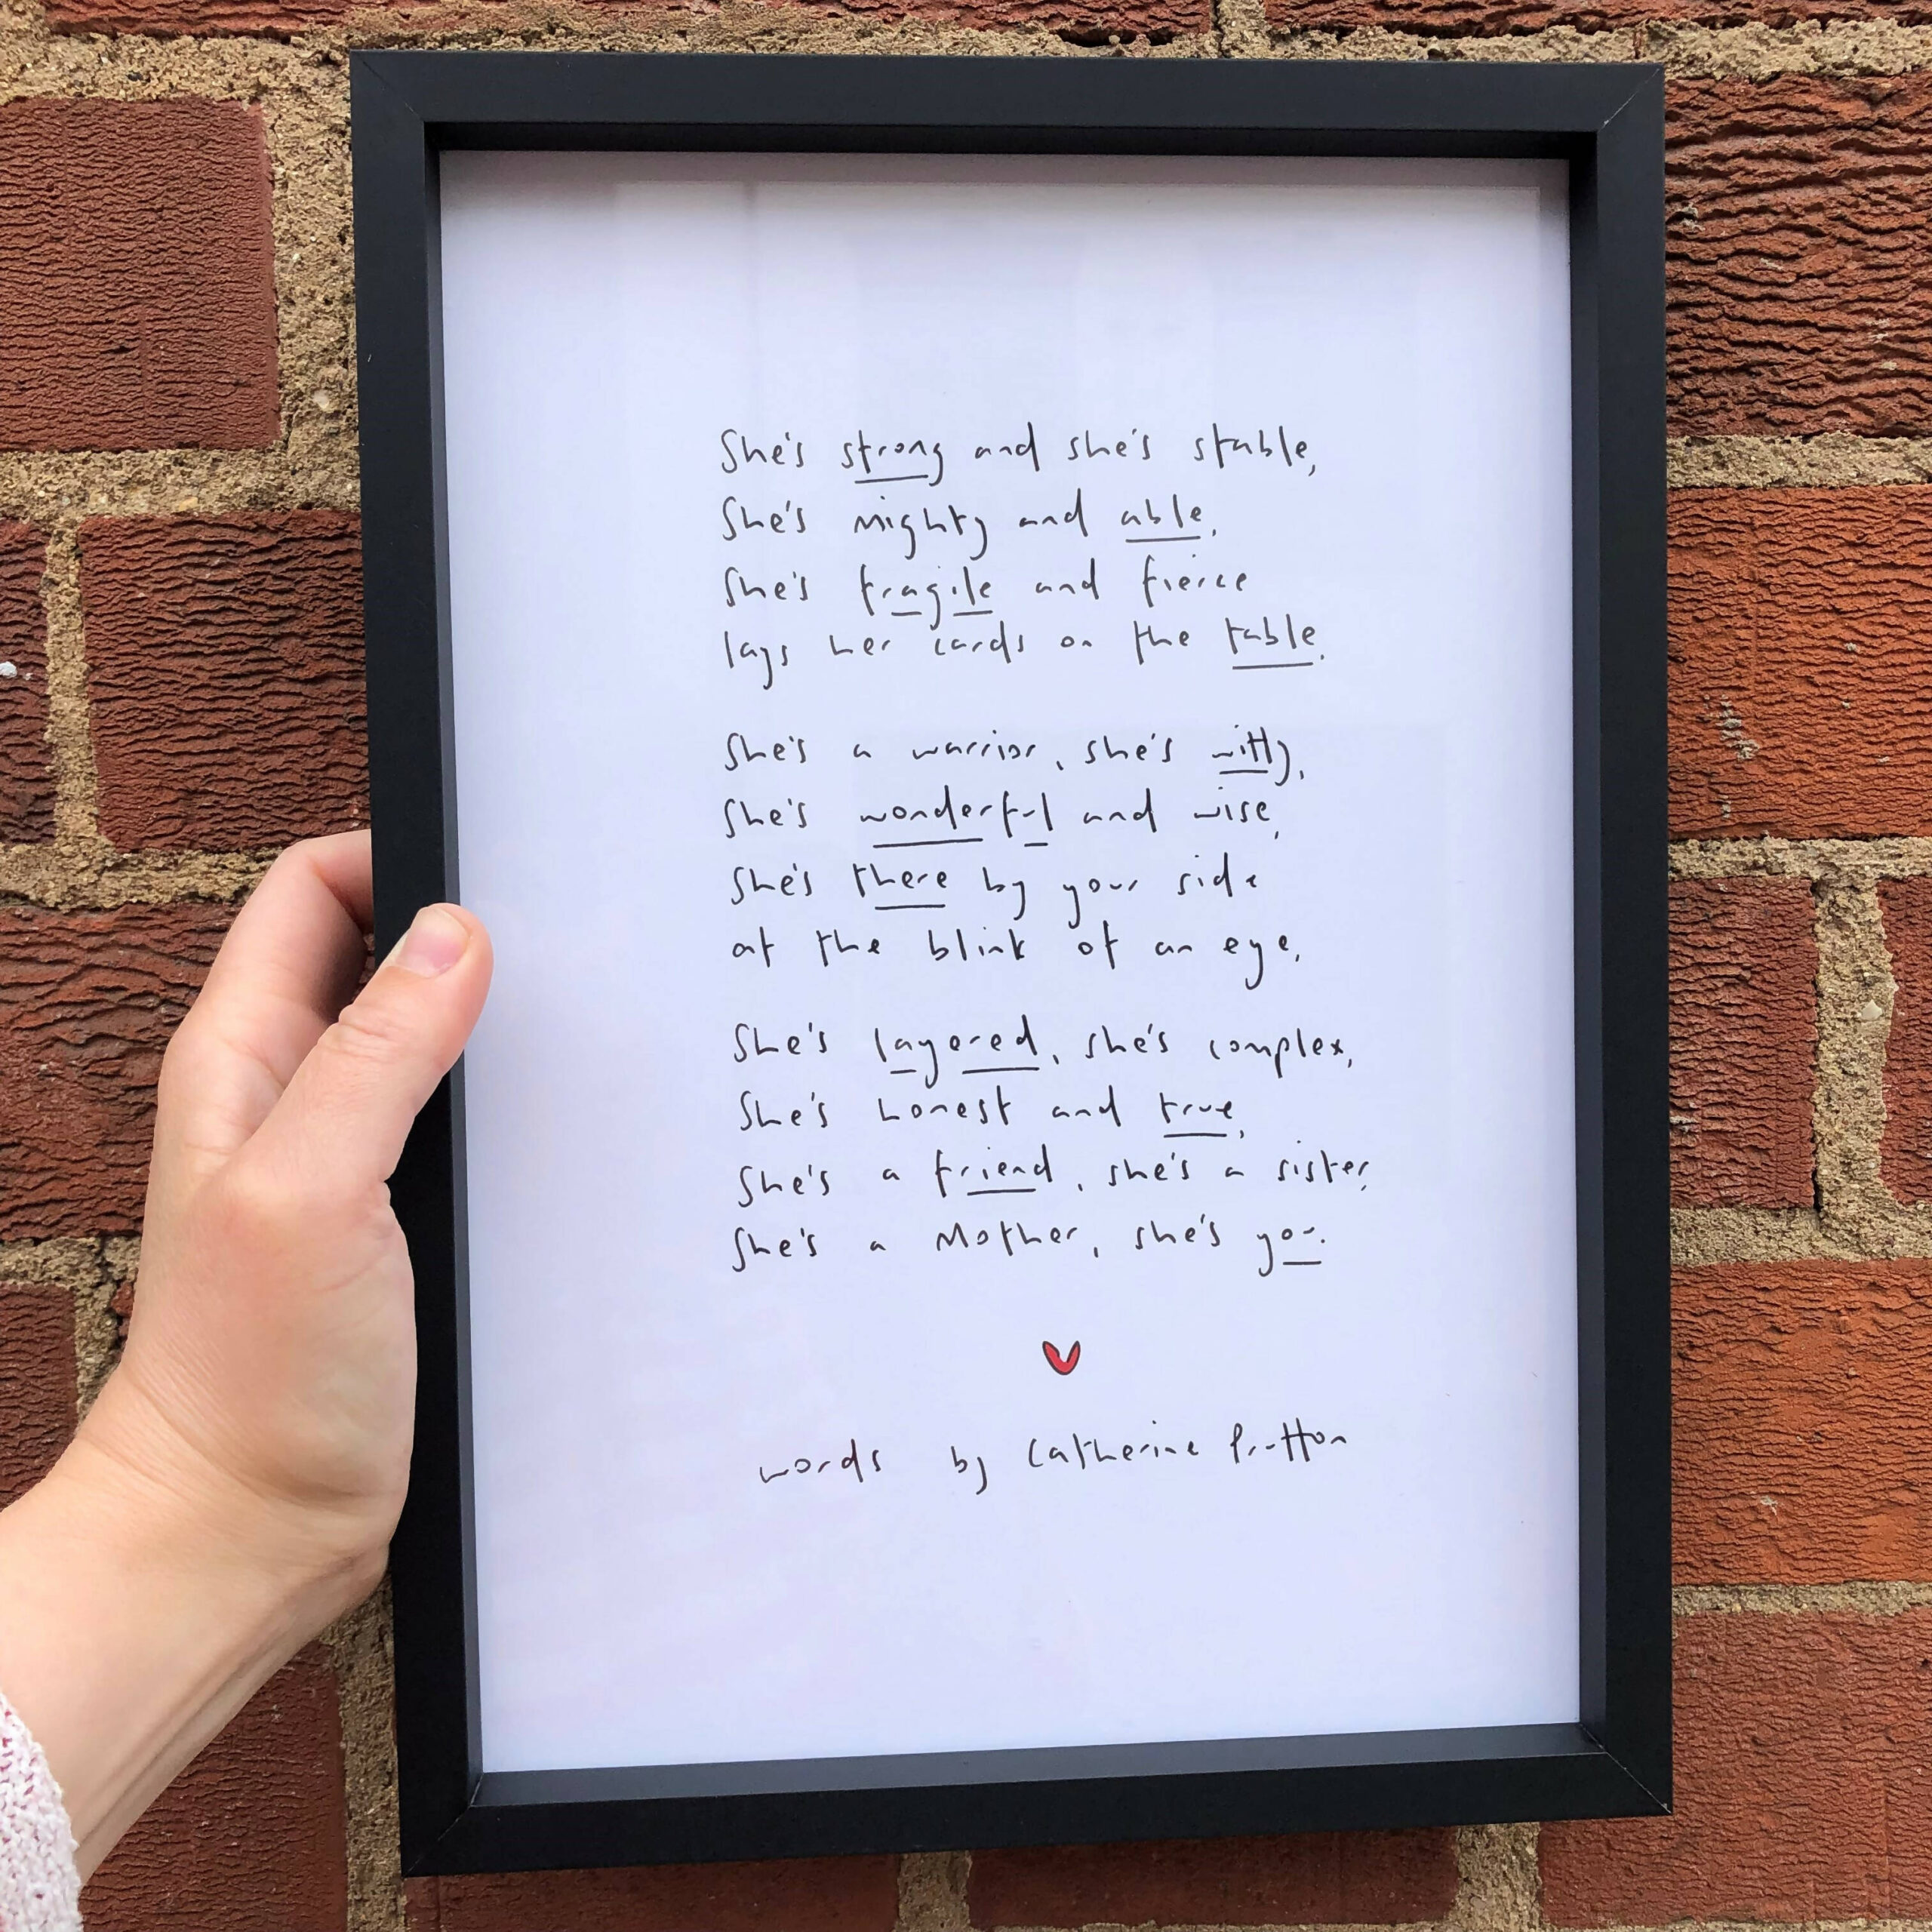 She's strong and she's stable,
She's mighty and able,
She's fragile and fierce
lays her cards on the table.
She's a warrior, she's witty,
She's wonderful and wise,
She's there by your side
at the blink of an eye.
She's layered, she's complex,
She's honest and true,
She's a friend, she's a sister,
She's a Mother, she's you.
words by Catherine Prutton